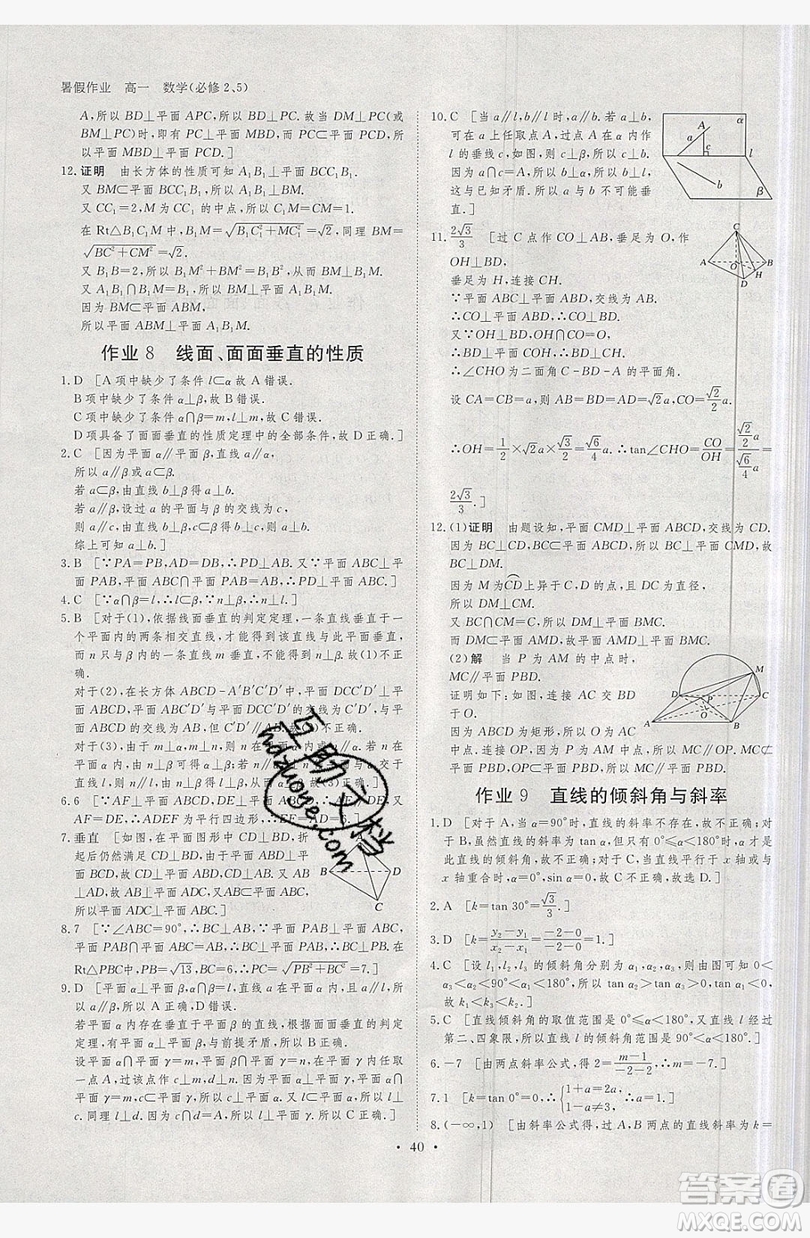 暑假作业 高一 数学(必修2、5)
A,所以 BD⊥平面 APC,所以 BD⊥PC.故当 DM⊥PC(或
BM⊥PC)时,即有 PC⊥平面 MBD,而 PC⊂平面 PCD,所以
平面 MBD⊥平面 PCD.]
12.证明 由长方体的性质可知 A₁B₁⊥平面 BCC₁B₁,
又 BM⊂平面 BCC₁B₁,所以 A₁B₁⊥BM.
又 CC₁=2,M 为 CC₁ 的中点,所以 C₁M=CM=1.
在 Rt△B₁C₁M 中,B₁M=√(B₁C₁²+MC₁²)=√2,
同理 BM=√(BC²+CM²)=√2,又 B₁B=2,
所以 B₁M²+BM²=B₁B²,从而 BM⊥B₁M.
又 A₁B₁∩B₁M=B₁,所以 BM⊥平面 A₁B₁M,
因为 BM⊂平面 ABM,
所以平面 ABM⊥平面 A₁B₁M.
作业 8 线面、面面垂直的性质
1.D [A 项中缺少了条件 l⊂α,故 A 错误.
B 项中缺少了条件 α⊥β,故 B 错误.
C 项中缺少了条件 α∩β=m,l⊥m,故 C 错误.
D 项具备了面面垂直的性质定理中的全部条件,故 D 正确.]
2.C [因为平面 α∥平面 β,直线 a∥α,
所以 a∥β 或 a⊂β.
若 a⊂β,则由直线 b⊥β,得 b⊥a.
若 a∥β,设过 a 的平面与 β 的交线为 c,
则 a∥c,由直线 b⊥β,c⊂β,得 b⊥c,所以 a⊥b.
综上可知 a⊥b.]
3.B [∵PA=PB,AD=DB,∴PD⊥AB.又∵平面 ABC⊥平
面 PAB,平面 ABC∩平面 PAB=AB,∴PD⊥平面 ABC.]
4.C [∵α∩β=l,∴l⊂β,∵n⊥β,∴n⊥l.]
5.B [对于(1),根据线面垂直的判定定理,一条直线垂直于
一个平面内的两条相交直线,才垂直于这个平面,即 m 垂
直 n 时,n 不一定垂直平面 β,又直线 m 垂直平面 α,故不正
确.
对于(2),在长方体 ABCD-A′B′C′D′ 中,平面 DCC′D′⊥平
面 ABCD,C′D′⊂平面 DCC′D′,平面 DCC′D′ 与平面
ABCD 的交线为 AB,但 C′D′∥平面 ABCD,故(2)不正确.
对于(3),由于 m⊥α,m⊥n,则 n 在平面 α 内或 n∥α,若 n
在平面 α 内,由 n⊂β 知 α 与 β 有交点,故不正确.]
6.6 [∵AF⊥平面 ABCD,DE⊥平面 ABCD,∴AF∥DE,又
AF=DE,∴ADEF 为平行四边形,∴EF=AD=6.]
7.垂直 [如图,在平面图形中 CD⊥BD,折
起后仍然满足 CD⊥BD,
由于平面 ABD⊥平面 BCD,故 CD⊥平
面 ABD,CD⊥AB.又 AB⊥AD,
故 AB⊥平面 ADC,
所以平面 ADC⊥平面 ABC.]
8.7 [∵∠ABC=90°,∴BC⊥AB,又平面 PAB⊥平面
ABCD,平面 PAB∩平面 ABCD=AB,∴BC⊥平面 PAB,在
Rt△PBC 中,PB=√13,BC=6,∴PC=√(PB²+BC²)=7.]
9.D [由平面 α⊥平面 β,α∩β=l,在平面 β 内只有和直线 l
垂直的直线才和平面 α 垂直,从而 A,D 错误.
若平面 α 内存在直线垂直于平面 β,根据面面垂直的判定,则
有平面 α 垂直于平面 β,与前提矛盾,所以 B 正确.
设平面 α⊥平面 γ,平面 β⊥平面 γ,且平面 α∩γ=b,平面 β∩
γ=a,在平面 γ 内任取一点作 c⊥b,d⊥a,由平面 α∩
平面 β=l,则 c⊥l,d⊥l.所以 l⊥平面 γ,所以 C 正确.]
10.C [因为 a∥l,l∥b,所以 a∥b.若 a⊥b,
可以在 a 上任取点 A,过点 A 在 α 内作
l 的垂线 c,因为 α⊥β,所以 c⊥β.因为
b⊂β,所以 c⊥b.又因为 a⊥b,
所以 a∩c=A,所以 b⊥α.因为 l⊂α,所以
b⊥l,与已知矛盾,所以 a 与 b 不可能
垂直.]
11. 2√3/3 [过 C 点作 CO⊥AB,垂足为 O,作
OH⊥BD,
垂足为 H,连接 CH.
∵平面 ABC⊥平面 ABD,交线为 AB,
∴CO⊥平面 ABD,∴CO⊥BD.
又∵OH⊥BD,CO∩OH=O,
∴BD⊥平面 COH,∴BD⊥CH,
∴∠CHO 为二面角 C-BD-A 的平面角.
设 CA=CB=a,则 AB=BD=AD=√2a,CO=√2/2 a,
∴OH=1/2×√3/2×√2a=√6/4 a.∴tan∠CHO=CO/OH=(√2/2 a)/(√6/4 a)=
2√3/3.]
12.(1)证明 由题设知,平面 CMD⊥平面 ABCD,交线为 CD.
因为 BC⊥CD,BC⊂平面 ABCD,所以 BC⊥平面 CMD,故
BC⊥DM.
因为 M 为CD上异于 C,D 的点,且 DC 为直径,
所以 DM⊥CM.
又 BC∩CM=C,所以 DM⊥平面 BMC.
而 DM⊂平面 AMD,故平面 AMD⊥平面 BMC.
(2)解 当 P 为 AM 的中点时,
MC∥平面 PBD.
证明如下:如图,连接 AC 交 BD
于 O.
因为 ABCD 为矩形,所以 O 为
AC 中点.连接 OP,因为 P 为 AM 中点,所以 MC∥OP.MC⊄
平面 PBD,OP⊂平面 PBD,所以 MC∥平面 PBD.
作业 9 直线的倾斜角与斜率
1.D [对于 A,当 α=90°时,直线的斜率不存在,故不正确;对
于 B,虽然直线的斜率为 tan α,但只有 0°≤α<180°时,α 才是
此直线的倾斜角,故不正确;对于 C,当直线平行于 x 轴或与
x 轴重合时,α=0°,sin α=0,故 C 不正确,故选 D.]
2.A [k=tan 30°=√3/3.]
3.D [k=(y₂-y₁)/(x₂-x₁)=(-2-0)/(-1-0)=2.]
4.C [设 l₁,l₂,l₃ 的倾斜角分别为 α₁,α₂,α₃,则由图可知 0<
α₃<α₂<90°<α₁<180°,所以 tan α₂>tan α₃>0,tan α₁<0,
故 k₁<k₃<k₂.]
5.C [直线倾斜角的取值范围是 0°≤α<180°,又直线 l 经过
第二、四象限,所以直线 l 的倾斜角范围是 90°<α<180°.]
6.-7 [由两点斜率公式,得 2=(m-1)/(-2-2),∴m=-7.]
7.1 [k=tan 45°=1,∴{1+a=2, 1-a≠3,∴a=1.]
8.(-∞,1) [由斜率公式,经过两点的直线斜率为 k=
• 40 •
互助文档
hdzuowen.com
答案圈
MXQE.COM